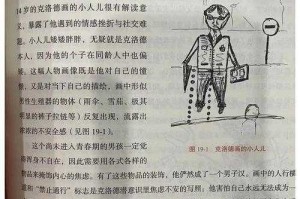 14岁的克洛德画的小人儿很有解读意
义，暴露了他遇到的情感挫折与社交难
题。小人儿矮矮胖胖，无疑就是克洛德
本人，因为他的个子在同龄人中也偏
矮。这幅人物画像既是他对自己的憎
恨，又是对当下自己的描绘，画中形似
男性生殖器的物体（雨伞、雪茄、极其
的裤子拉链等）反复出现，流露出
的不安全感（见图19-1）。
图 19-1 克洛德画的小人儿
这个尚未进入青春期的男孩一定觉
浑身不自在，因此需要用各式各样的
物品来掩饰内心的焦虑。有了这些物品的装饰，他俨然成了一个男子汉。画中的人行横
和“禁止通行”标志是克洛德潜意识里焦虑不安的写照：他害怕自己永远无法成为一